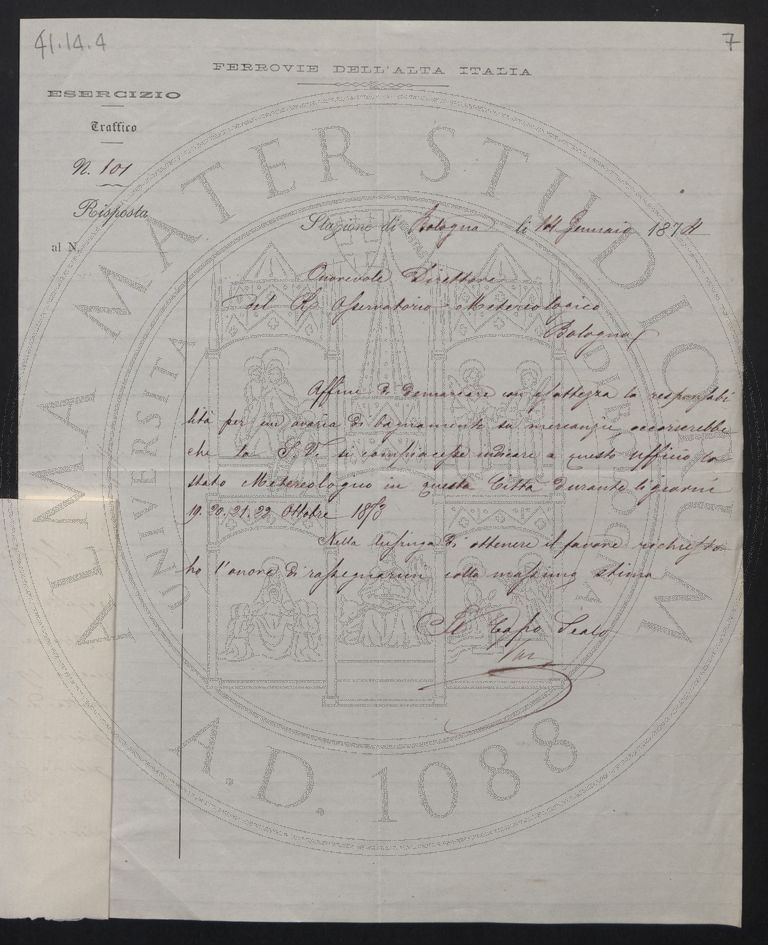 41.14.4
7
FERROVIE DELL'ALTA ITALIA
ESERCIZIO
Traffico
N. 101
Risposta
al N.
Stazione di Bologna li 14 Gennaio 1874
Onorevole Direttore
del R. Osservatorio Metereologico
Bologna
Affine di demarcare con esattezza la responsabi
lità per un avaria di bagnamento su mercanzie, occorrerebbe
che la S. V. si compiacesse indicare a questo ufficio lo
stato Metereologico in questa Città durante li giorni
19. 20. 21. 22 Ottobre 1873
Nella lusinga di ottenere il favore richiesto
ho l'onore di rassegnarmi colla massima stima
Il Capo Scalo
ALMA MATER STUDIORUM
UNIVERSITA
A.D. 1088